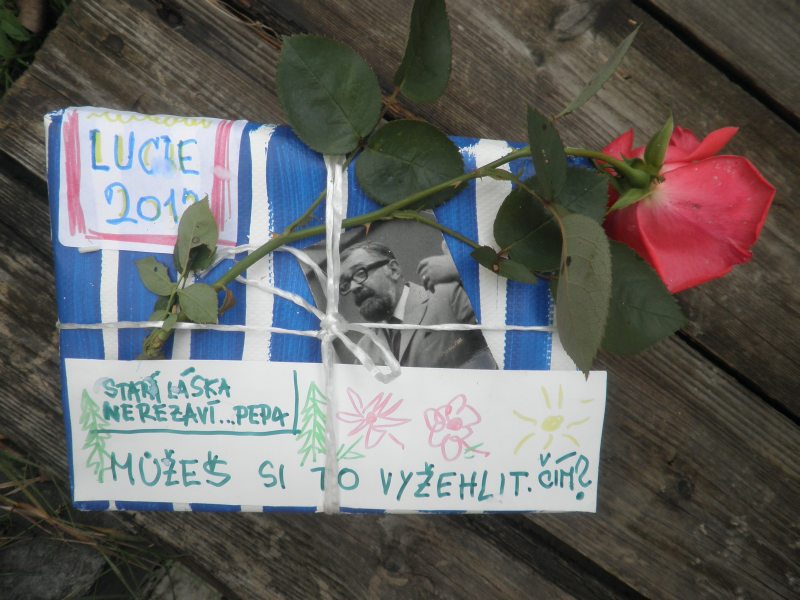 LUCIE
2012
STARÍ LÁSKA
NEREZAVÍ...PEPA
MŮŽEŠ SI TO VYŽEHLIT. ČÍM?